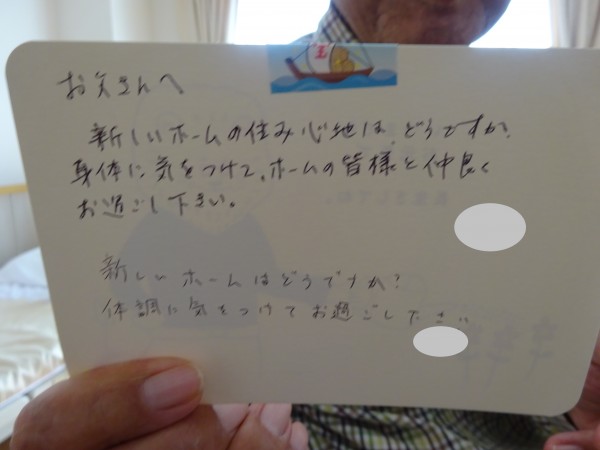 お父さんへ
新しいホームの住み心地は、どうですか?
身体に気をつけて、ホームの皆様と仲良く
お過ごし下さい。
新しいホームはどうですか?
体調に気をつけてお過ごし下さい